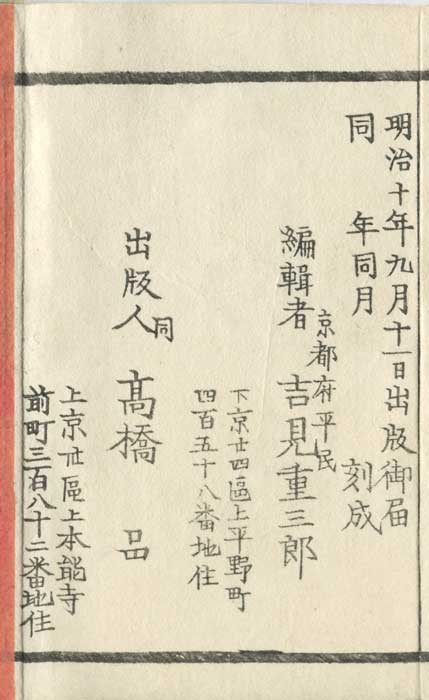 明治十年九月十一日出版御届
同 年同月 刻成
京都府平民
編輯者 吉見重三郎
下京廿四區上平野町
四百五十八番地住
同
出版人 髙橋 品
上京廿區上本能寺
前町三百八十二番地住